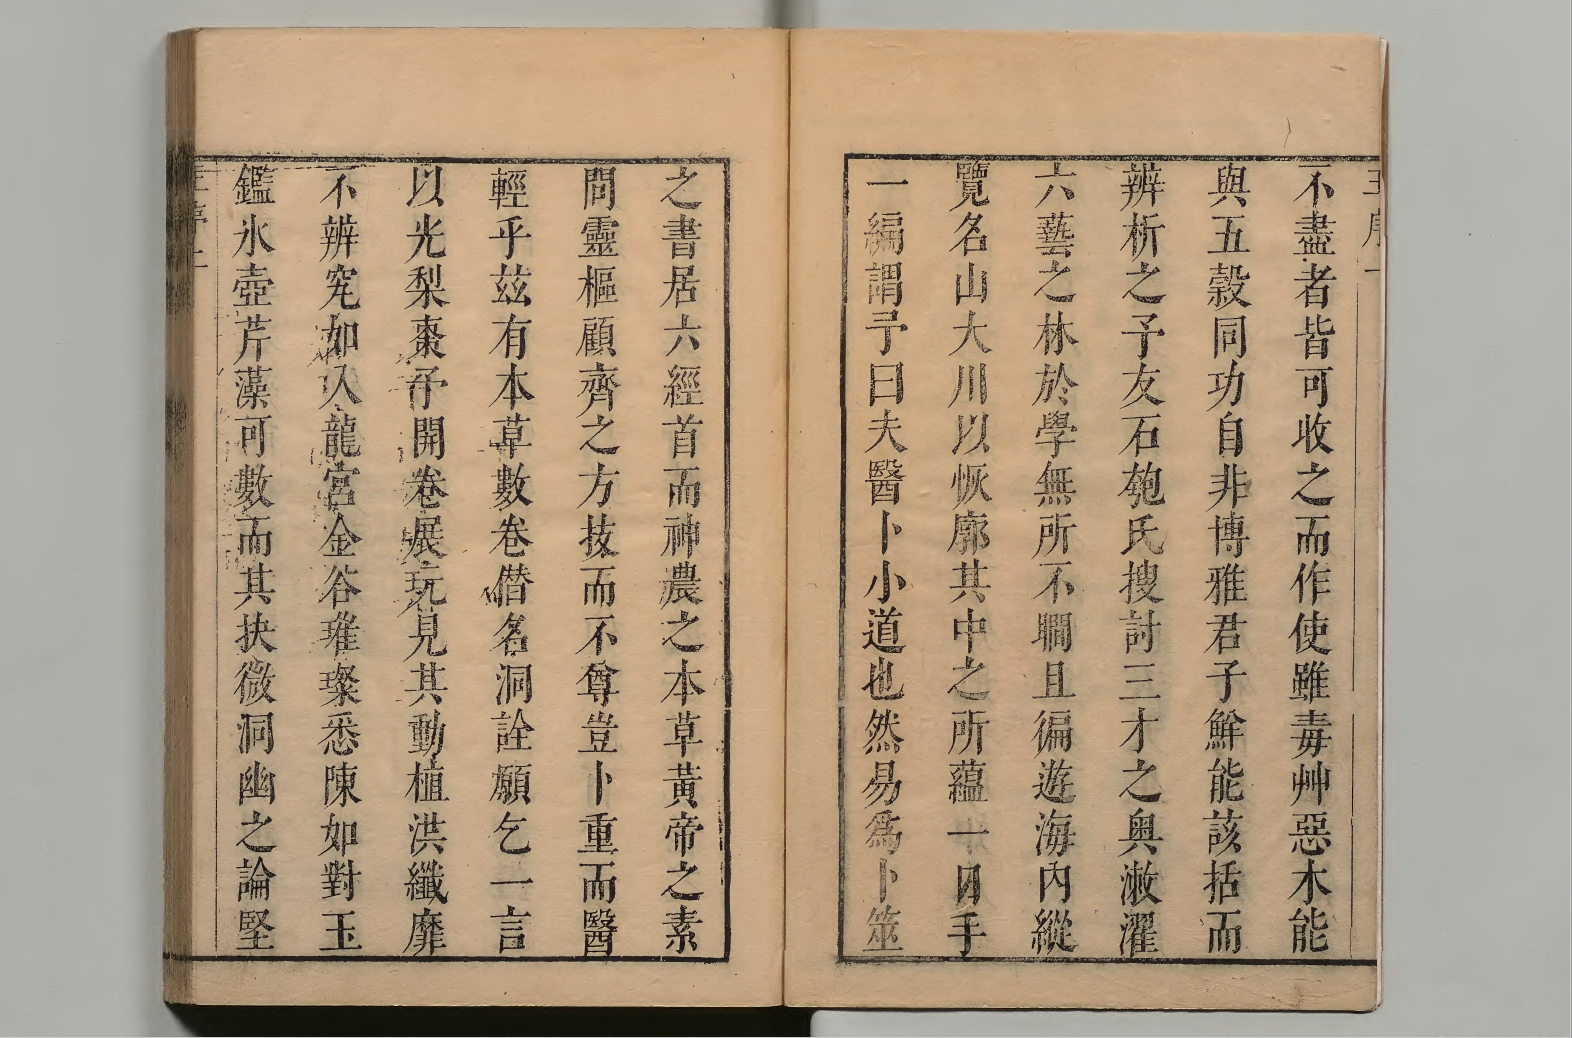 不盡者皆可收之而作使雖毒艸惡木能
與五穀同功自非博雅君子鮮能該括而
辨析之予友石匏氏搜討三才之奥漱濯
六藝之林於學無所不瞯且徧遊海内縱
覽名山大川以恢廓其中之所蘊一日手
一編謂予曰夫醫卜小道也然易爲卜筮
之書居六經首而神農之本草黃帝之素
問靈樞顧齊之方技而不尊豈卜重而醫
輕乎兹有本草數卷僭名洞詮願乞一言
以光梨棗予開卷展玩見其動植洪纖靡
不辨究如入龍宮金谷璀璨悉陳如對玉
鑑氷壺芹藻可數而其抉微洞幽之論堅